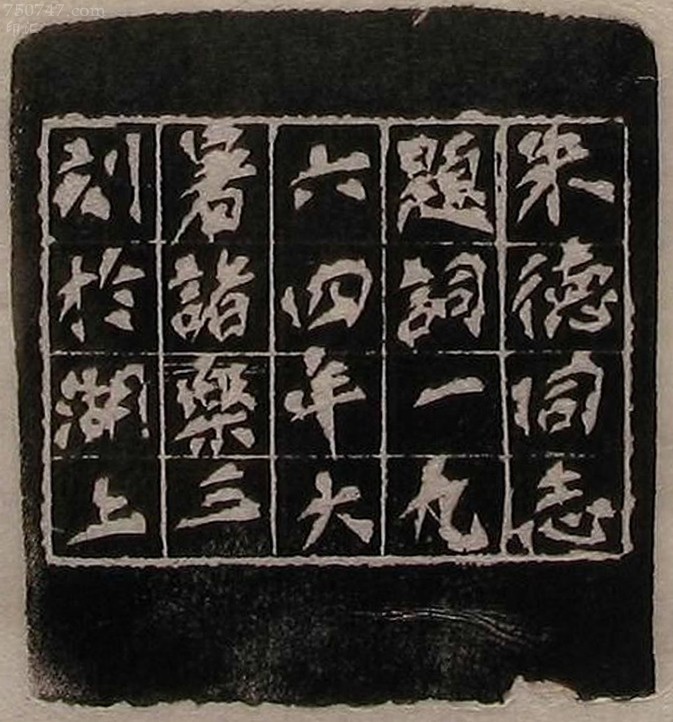 朱德同志
題詞一九
六四年大
暑諸樂三
刻於湖上
750747.com